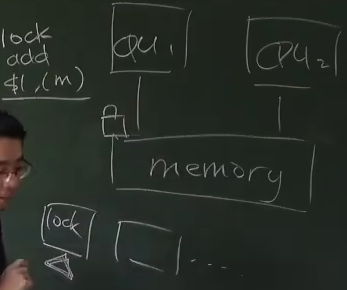 lock
add
$1, (m)
CPU1
CPU2
memory
lock
....